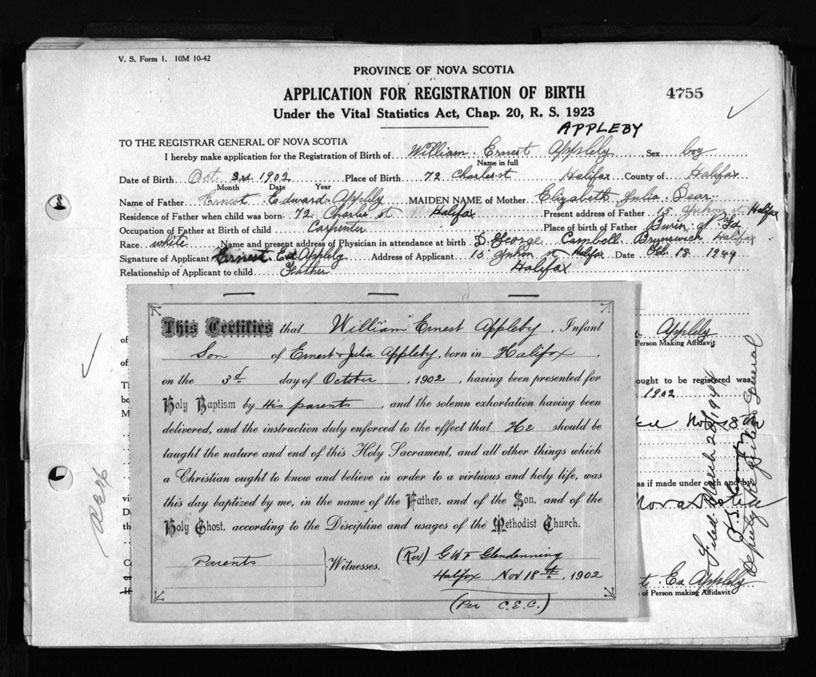 V. S. Form 1. 10M 10-42
PROVINCE OF NOVA SCOTIA
APPLICATION FOR REGISTRATION OF BIRTH
4755
Under the Vital Statistics Act, Chap. 20, R. S. 1923
APPLEBY
TO THE REGISTRAR GENERAL OF NOVA SCOTIA
I hereby make application for the Registration of Birth of William Ernest Appleby Sex boy
Name in full
Date of Birth Oct 3rd 1902 Place of Birth 72 Charles st Halifax County of Halifax
Month Date Year
Name of Father Ernest Edward Appleby MAIDEN NAME of Mother Elizabeth Julia
Residence of Father when child was born 72 Charles st Halifax Present address of Father 15 Halifax
Occupation of Father at Birth of child Carpenter Place of birth of Father Burin
Race white Name and present address of Physician in attendance at birth D. George Brunswick Halifax
Signature of Applicant Ernest Ed Appleby Address of Applicant 15 st Halifax Date Feb 18 1944
Relationship of Applicant to child Father Halifax
Appleby
Person Making Affidavit
ought to be registered was
1902
Nov 18
as if made under
Filed March 22 1944
Deputy Registrar General
Ed Appleby
of Person making Affidavit
This Certifies that William Ernest Appleby, Infant
Son of Ernest & Julia Appleby, born in Halifax,
on the 3rd day of October, 1902, having been presented for
Holy Baptism by His parents, and the solemn exhortation having been
delivered, and the instruction duly enforced to the effect that He should be
taught the nature and end of this Holy Sacrament, and all other things which
a Christian ought to know and believe in order to a virtuous and holy life, was
this day baptized by me, in the name of the Father, and of the Son, and of the
Holy Ghost, according to the Discipline and usages of the Methodist Church.
Parents Witnesses. (Rev) G W F Glendenning
Halifax Nov 18th, 1902
(Per C.E.C.)